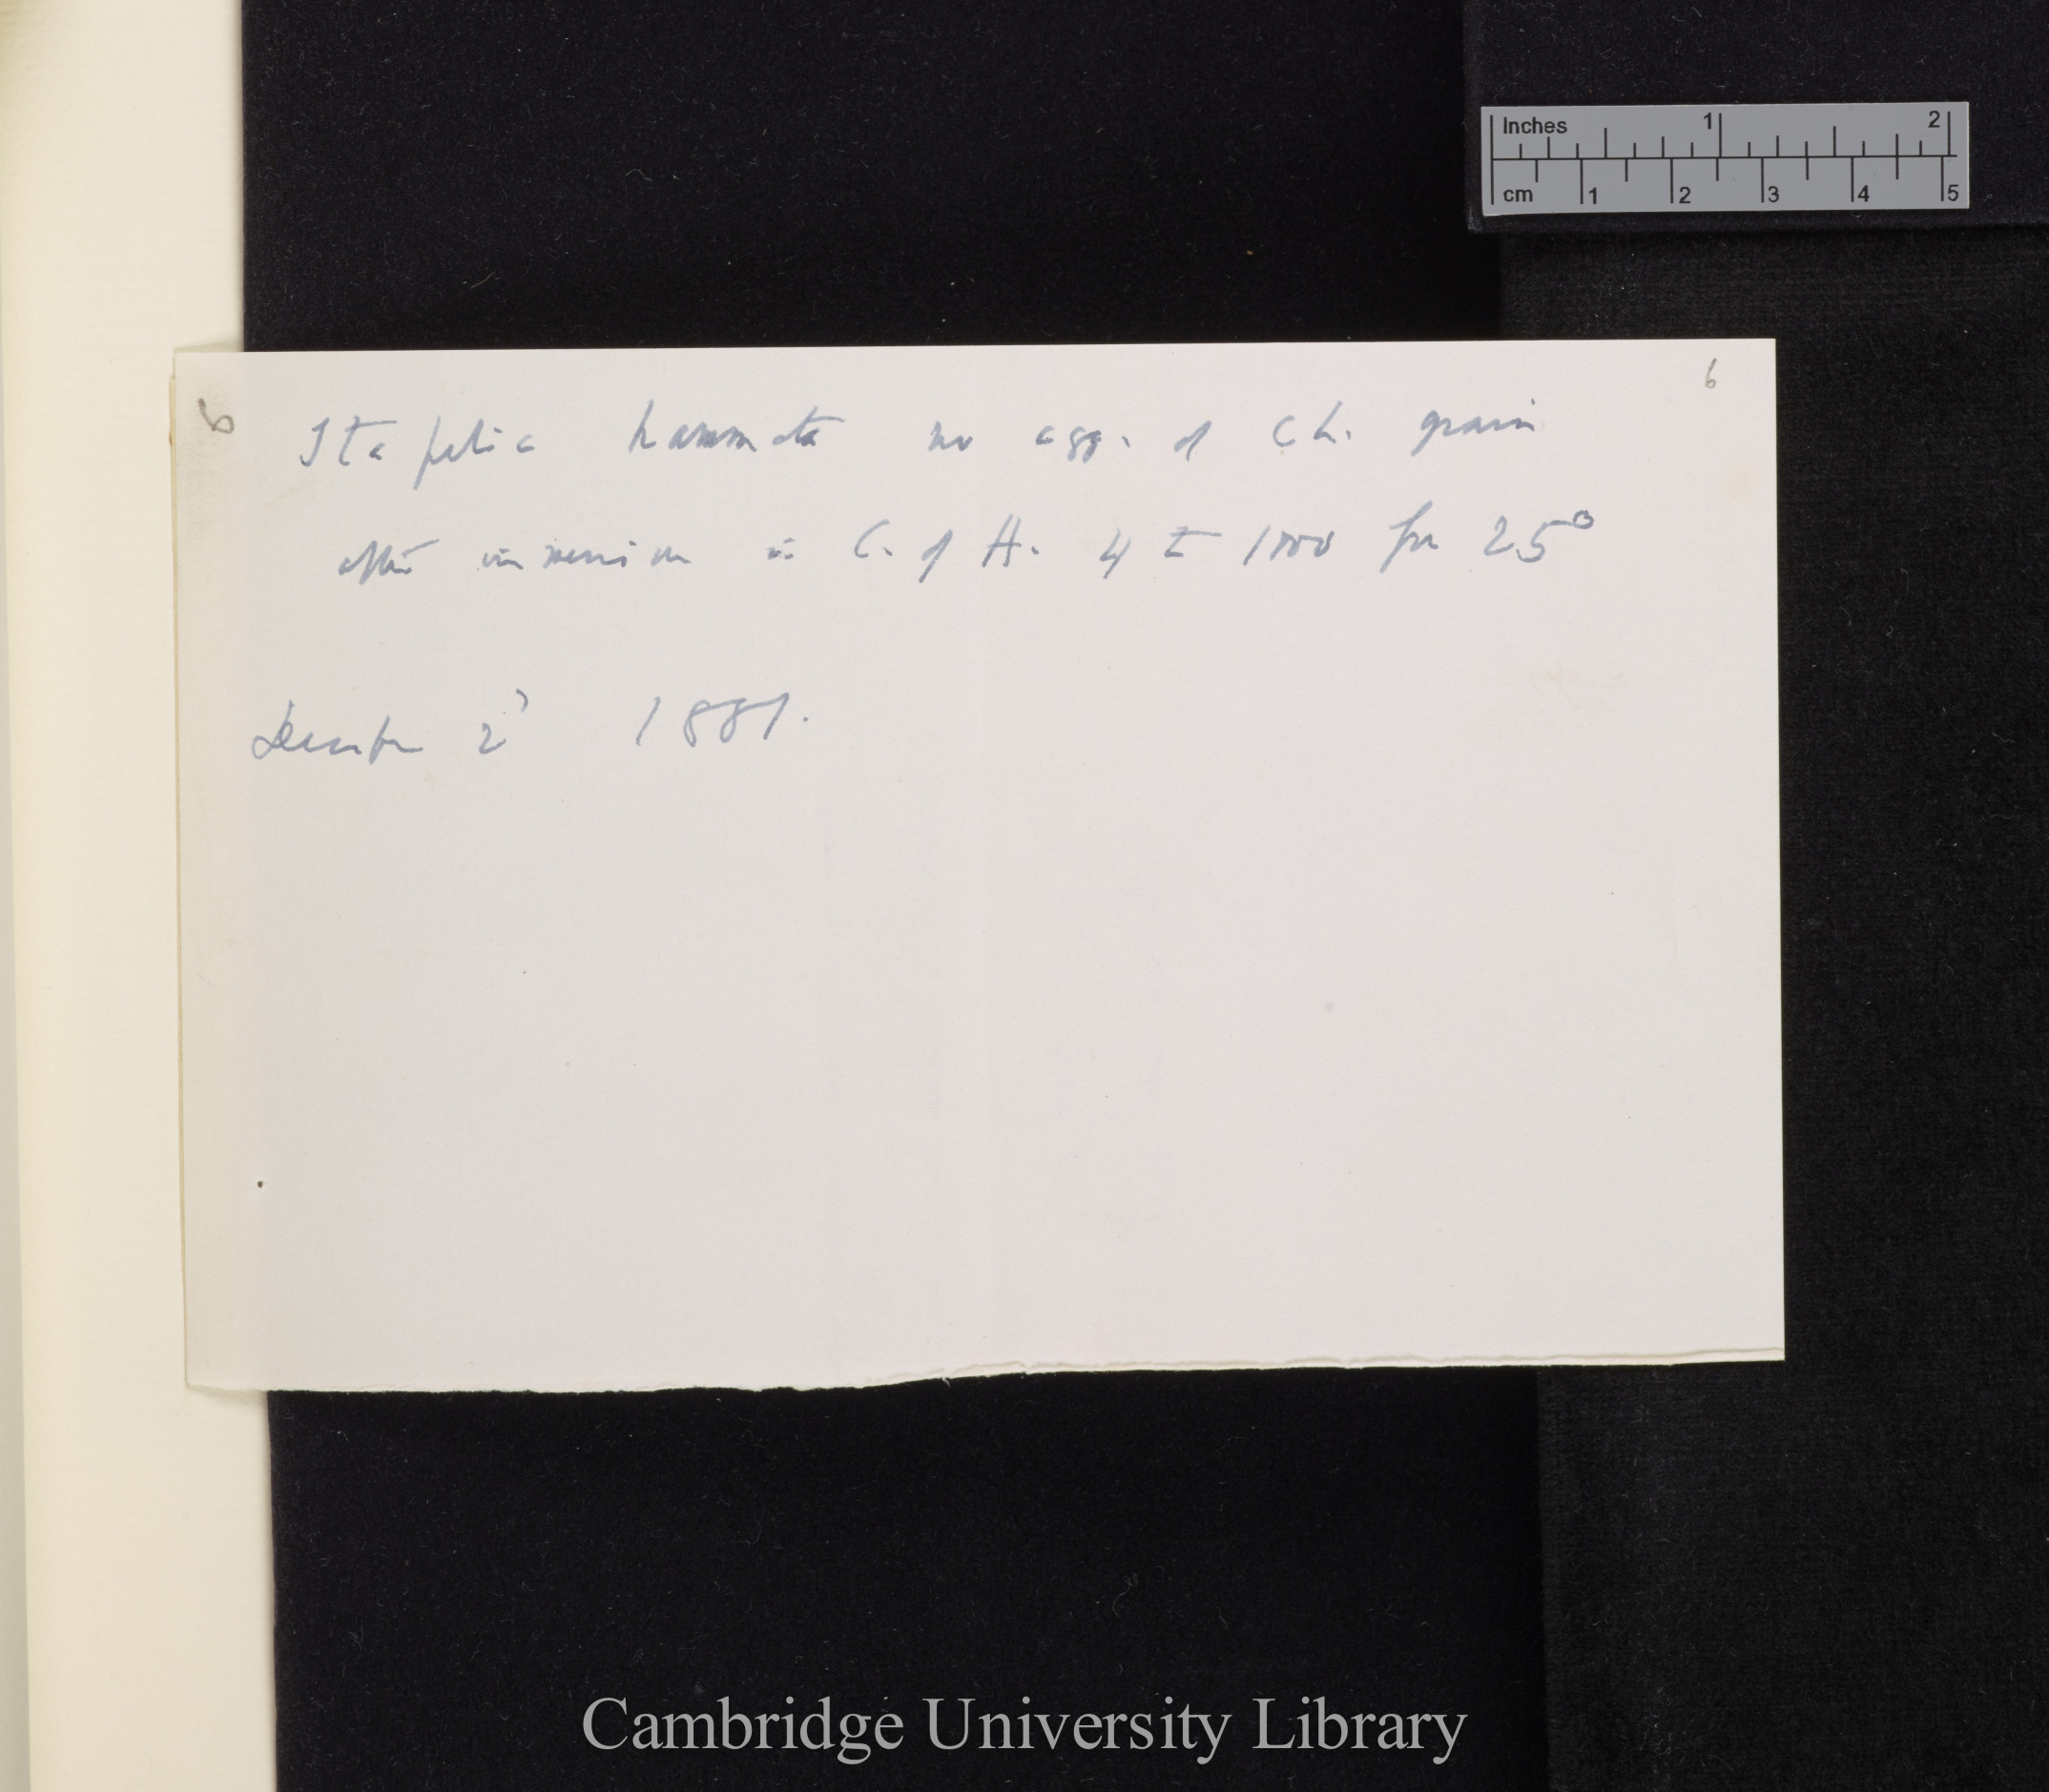 Inches 1 2
cm 1 2 3 4 5
6
6
Stapelia hammata no agg. of Ch. grain
after immersion in C. of A. 4 to 1000 for 25°
December 2d 1881.
Cambridge University Library